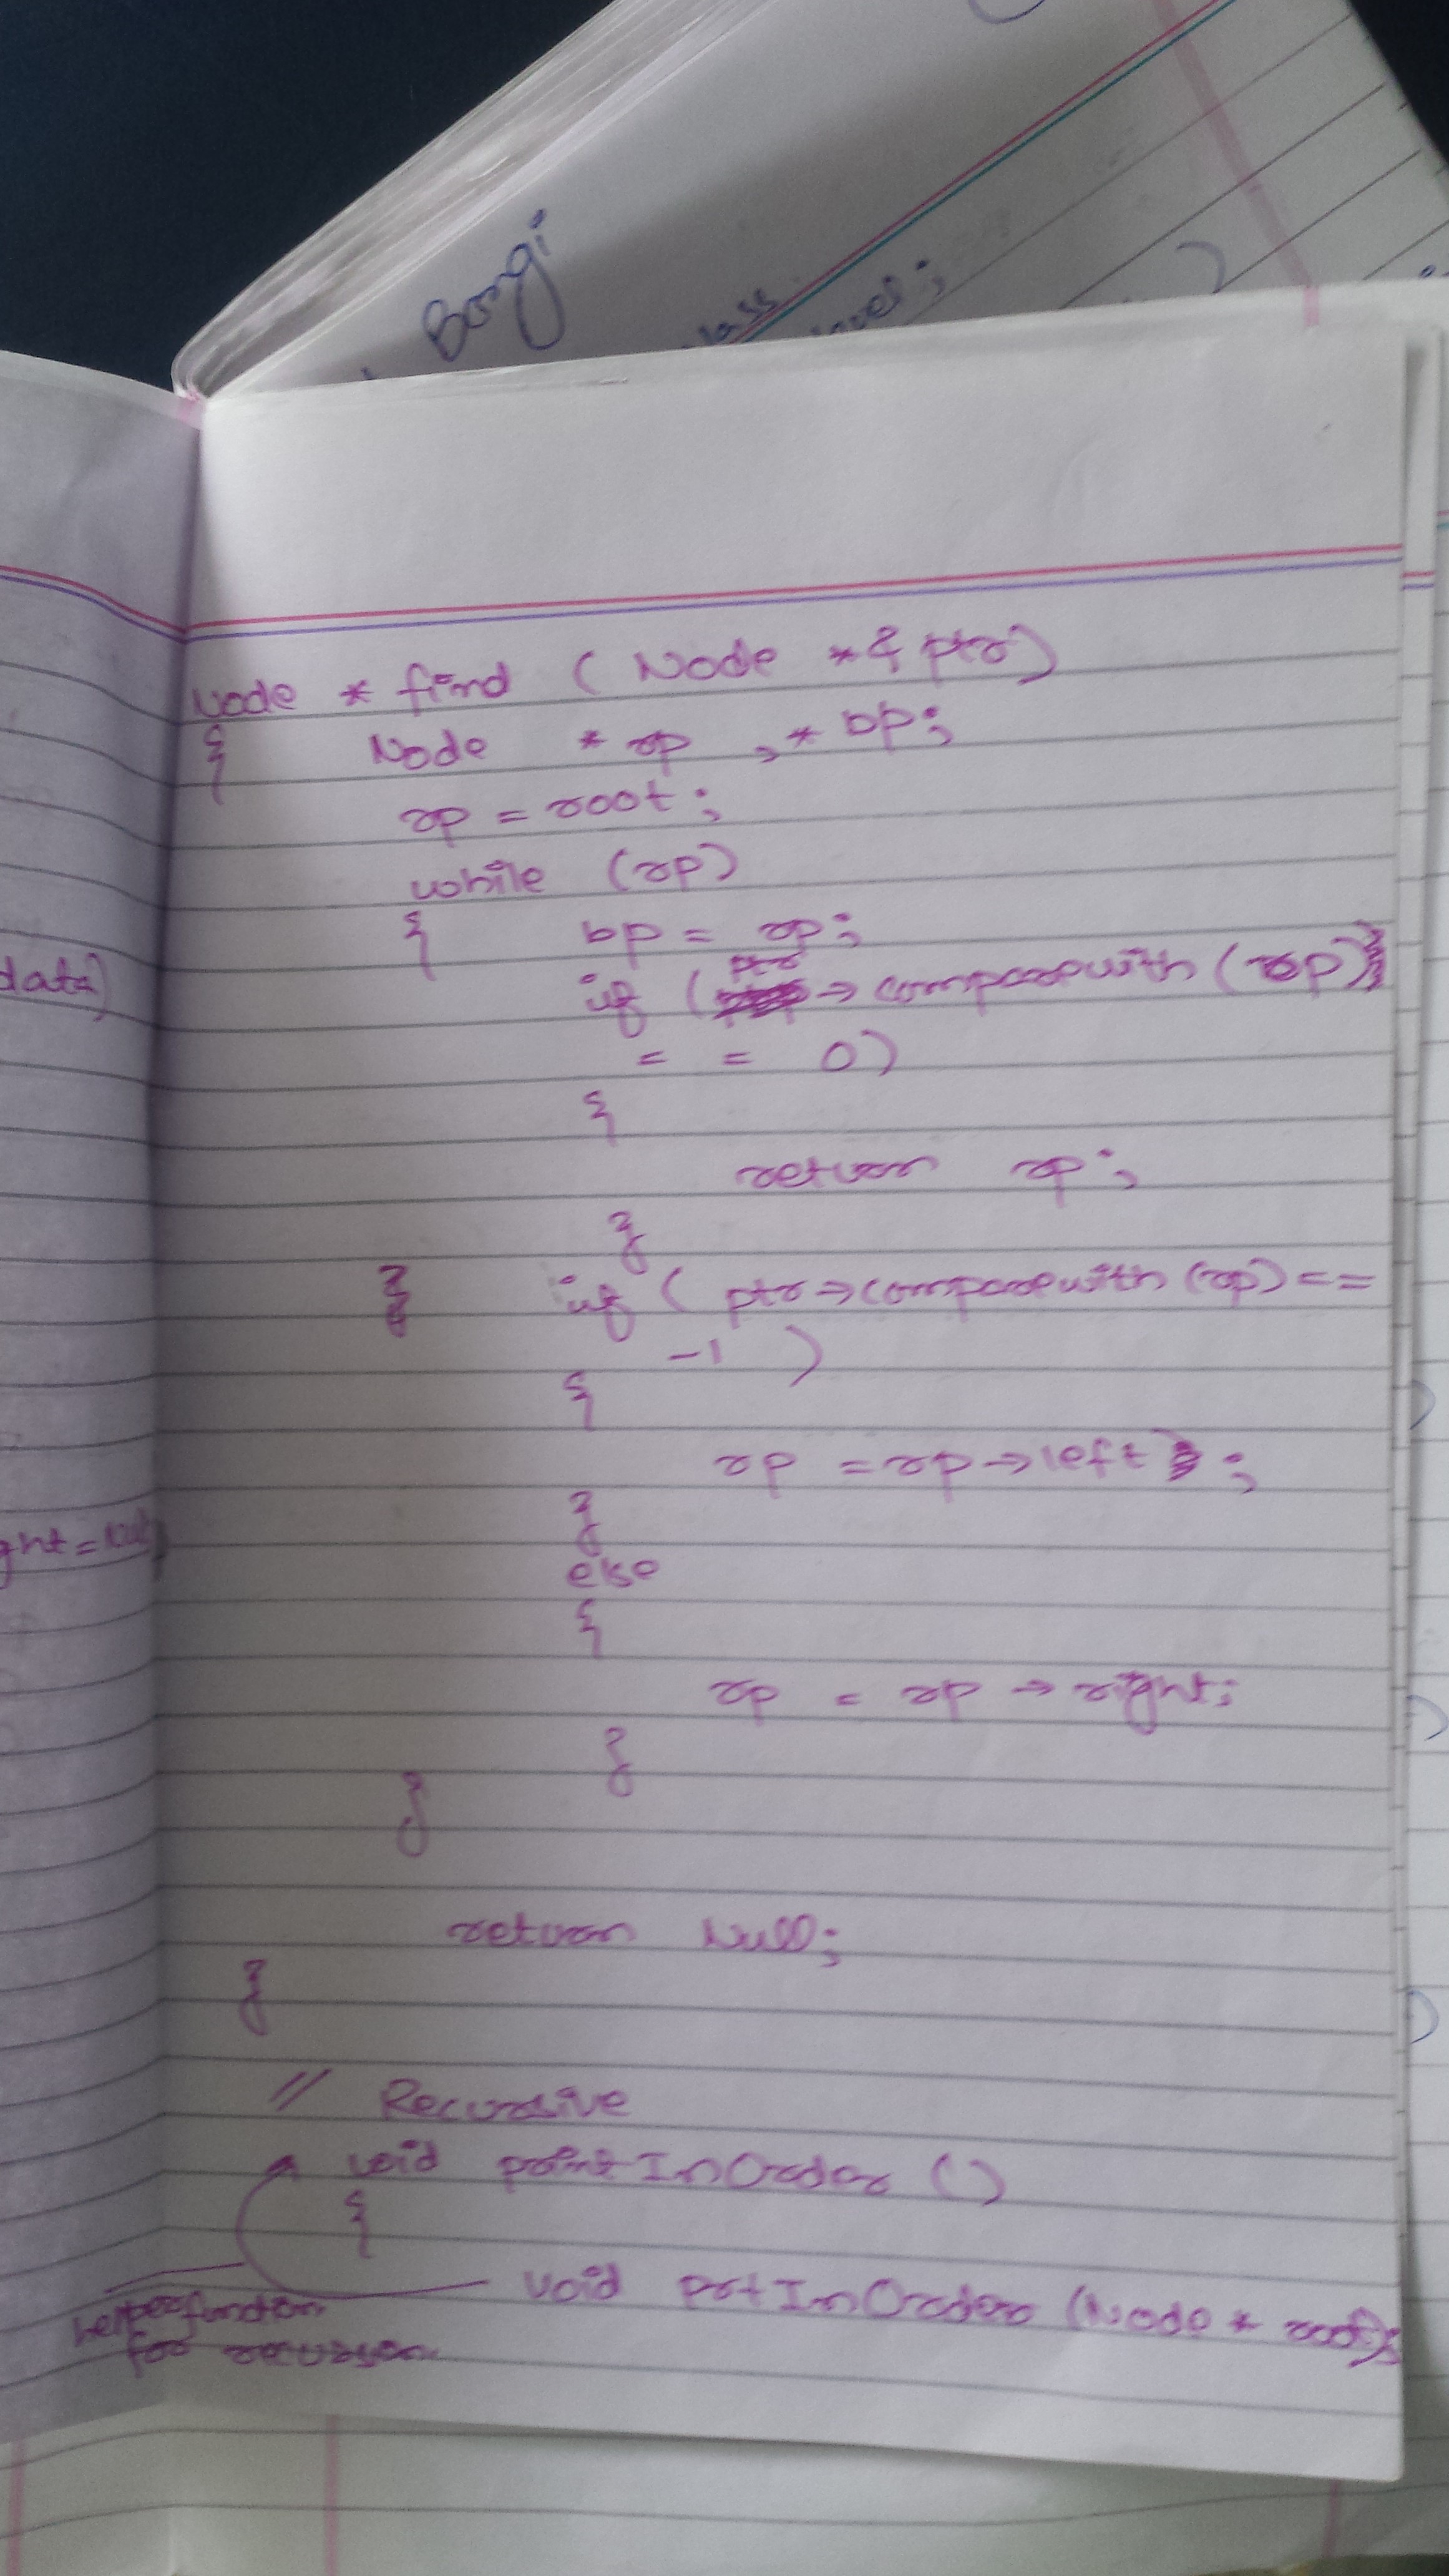 Bongi
class
Node * find ( Node *& ptr)
{ Node * rp , * bp;
rp = root;
while (rp)
{ bp = rp;
if (ptr → comparewith (rp)
= = 0)
{
return rp;
}
} if ( ptr → comparewith (rp) ==
-1 )
{
rp = rp → left ;
}
else
{
rp = rp → right;
}
}
return Null;
}
// Recursive
void printInOrder ()
{
void prtInOrder (Node * root);
helper function
for recursion
data)